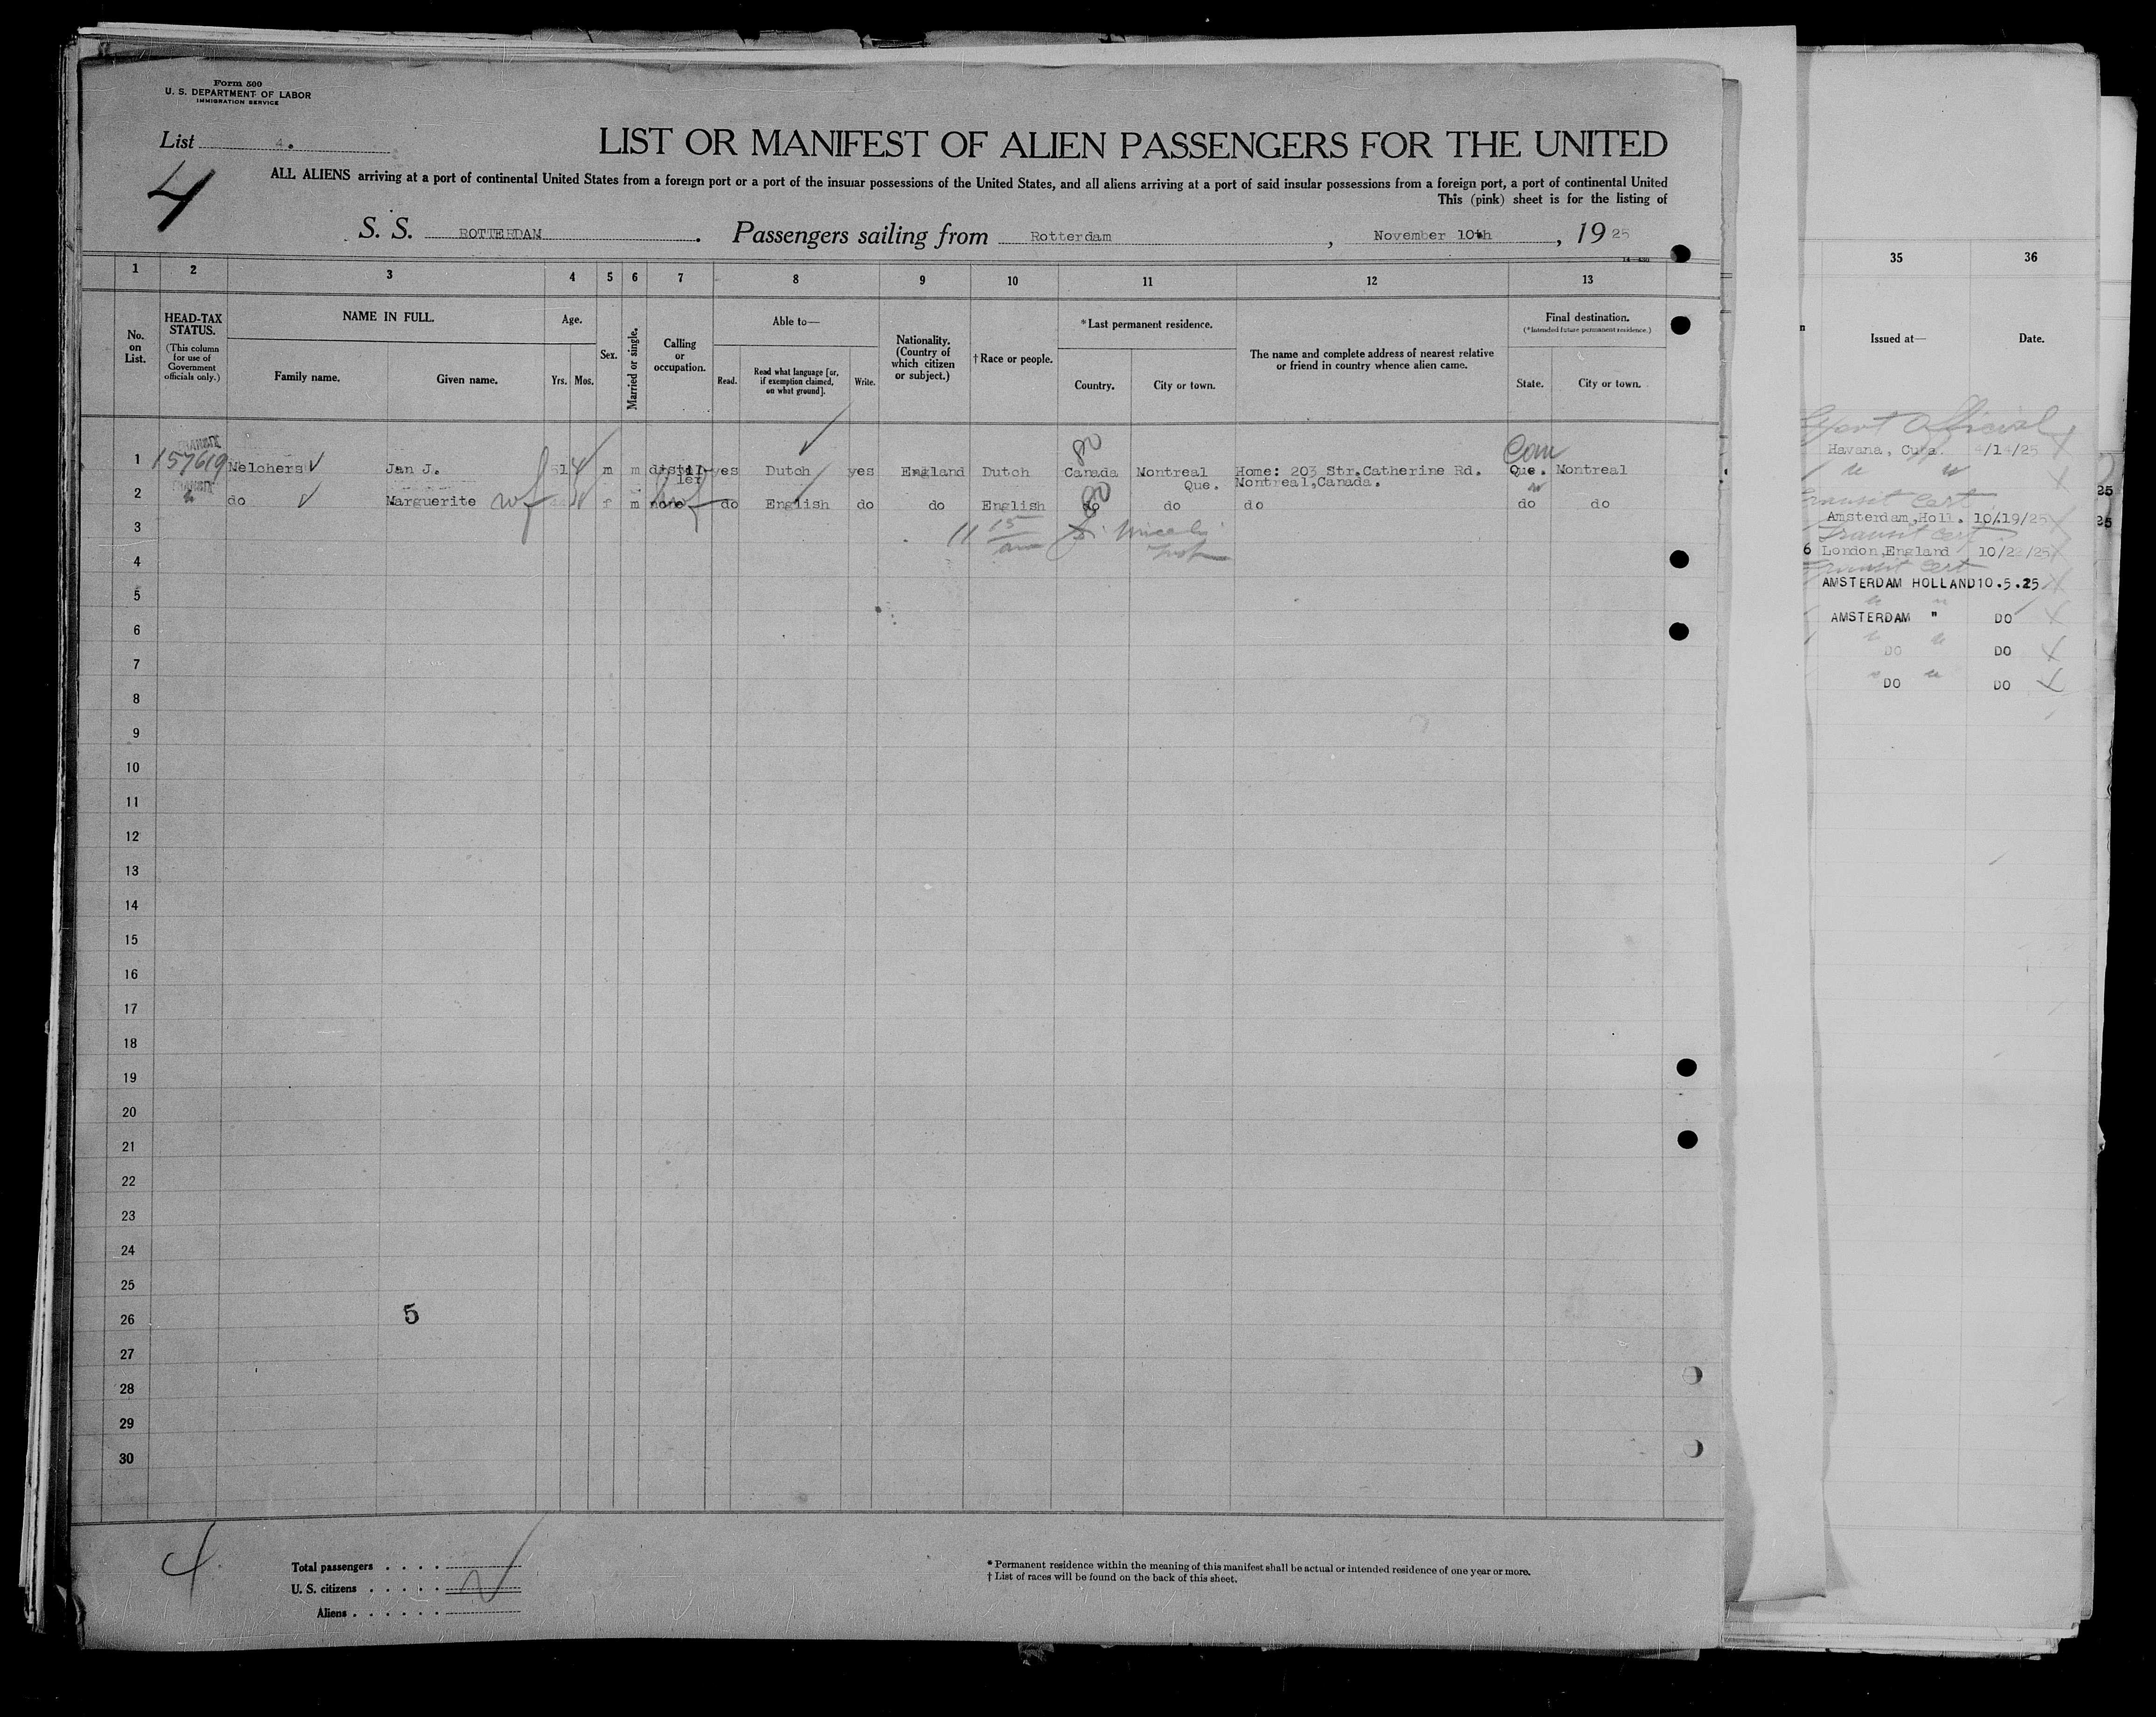 Form 500
U. S. DEPARTMENT OF LABOR
IMMIGRATION SERVICE
List 4.
4
LIST OR MANIFEST OF ALIEN PASSENGERS FOR THE UNITED
ALL ALIENS arriving at a port of continental United States from a foreign port or a port of the insular possessions of the United States, and all aliens arriving at a port of said insular possessions from a foreign port, a port of continental United
This (pink) sheet is for the listing of
S. S. ROTTERDAM. Passengers sailing from Rotterdam, November 10th, 1925
1 2 3 4 5 6 7 8 9 10 11 12 13
No. on List.
HEAD-TAX STATUS.
(This column for use of Government officials only.)
NAME IN FULL.
Family name. Given name.
Age.
Yrs. Mos.
Sex.
Married or single.
Calling or occupation.
Able to—
Read. Read what language [or, if exemption claimed, on what ground]. Write.
Nationality. (Country of which citizen or subject.)
† Race or people.
*Last permanent residence.
Country. City or town.
The name and complete address of nearest relative or friend in country whence alien came.
Final destination.
(*Intended future permanent residence.)
State. City or town.
TRANSIT
Can
1 157619 Melchers Jan J. 51 m m distil-ler yes Dutch yes England Dutch Canada Montreal Que. Home: 203 Str.Catherine Rd. Montreal,Canada. Que. Montreal
TRANSIT
2 do Marguerite wf f m none do English do do English do do do do do
3 11 15 am
4
5
6
7
8
9
10
11
12
13
14
15
16
17
18
19
20
21
22
23
24
25
26 5
27
28
29
30
4
Total passengers
U. S. citizens
Aliens
* Permanent residence within the meaning of this manifest shall be actual or intended residence of one year or more.
† List of races will be found on the back of this sheet.
35 36
Issued at— Date.
Official
Havana, Cuba. 4/14/25
25
Transit Cert
Amsterdam,Holl. 10/19/25
25
Transit Cert
6 London,England 10/22/25
Transit Cert
AMSTERDAM HOLLAND 10.5.25
AMSTERDAM " DO
DO DO
DO DO